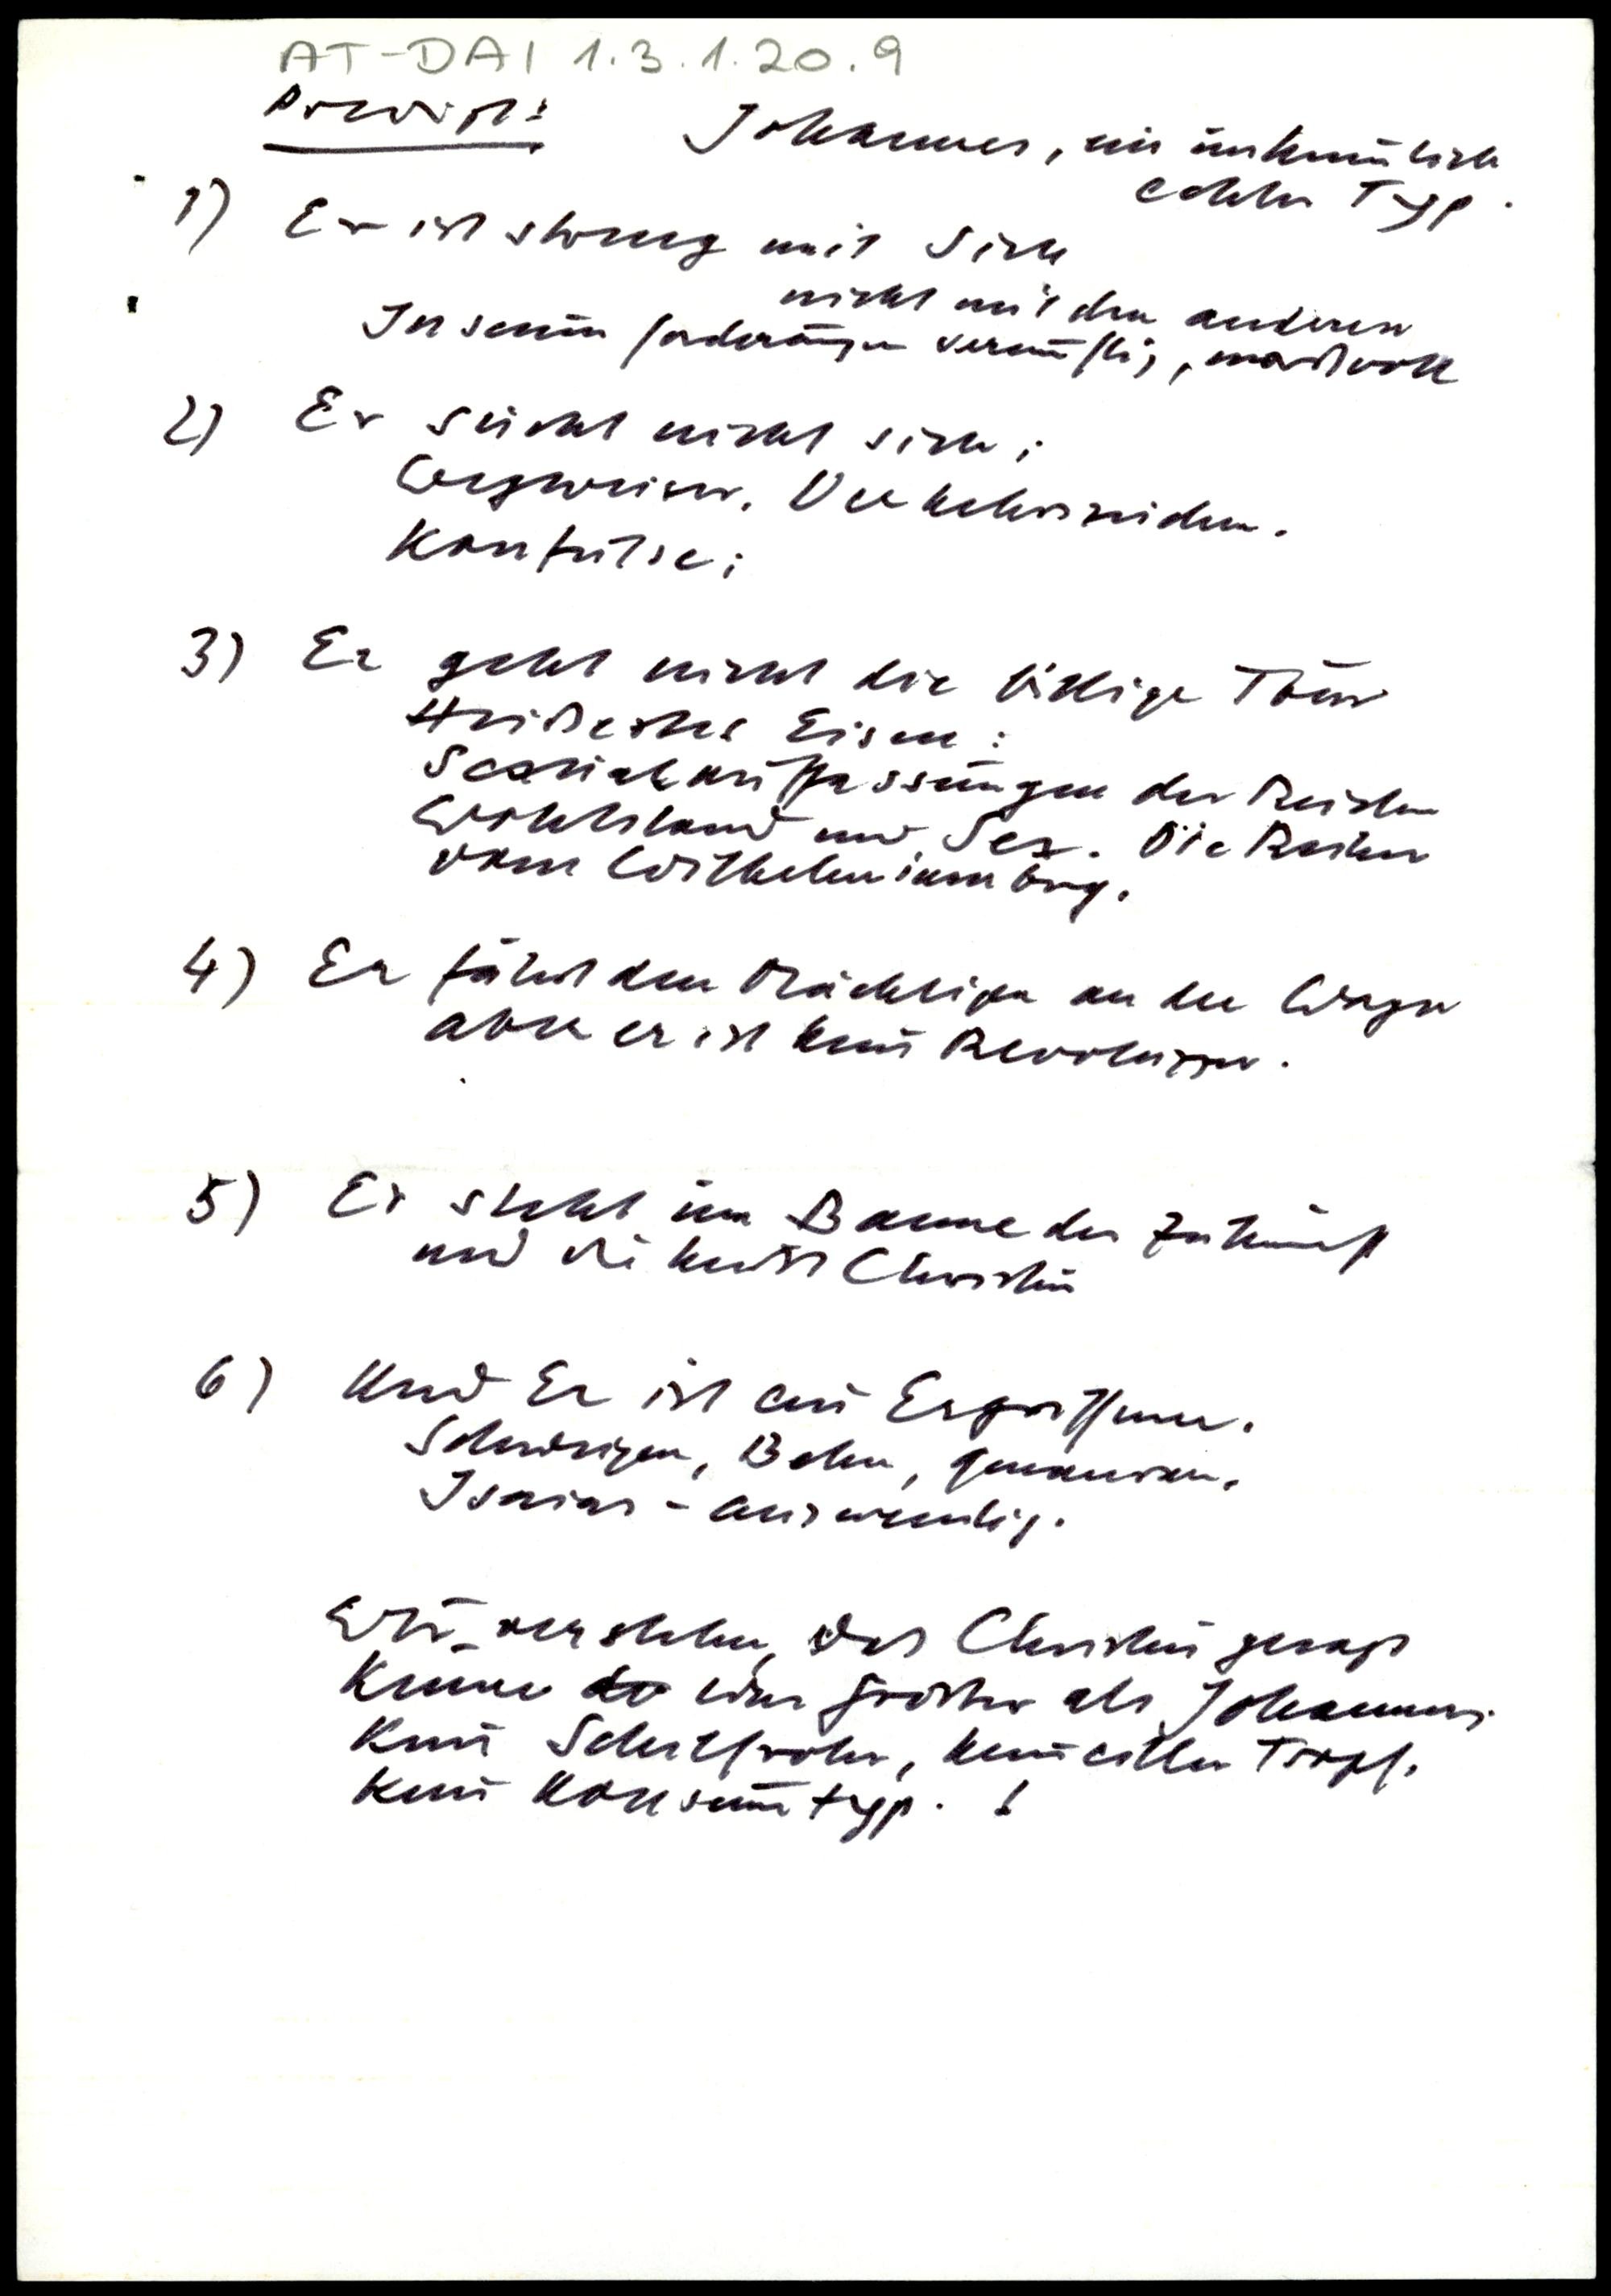 AT-DAI 1.3.1.20.9
Predigt: Johannes, ein
echter Typ.
1) Er ist streng mit sich
nicht mit den anderen
In seinen Forderungen vernünftig, maßvoll
2) Er sucht nicht sich;
Wegweiser. Verkehrszeichen.
3) Er geht nicht die billige Tour
Heißeste Eisen:
Sozialauffassungen der Reichen
Wohlstand und Sex. Die Reichen
vom
4) Er fährt den Mächtigen an den Wagen
aber er ist kein Revoluzzer.
5) Er steht im Banne der Zukunft
und die heißt Christus
6) Und Er ist ein Ergriffener.
Schweigen, Beten,
Isaias - auswendig.
Wir verstehen, das Christus gesagt
Keiner war größer als Johannes.
Kein Schilfrohr, kein eitler Tropf.
Kein Konsumtyp. !